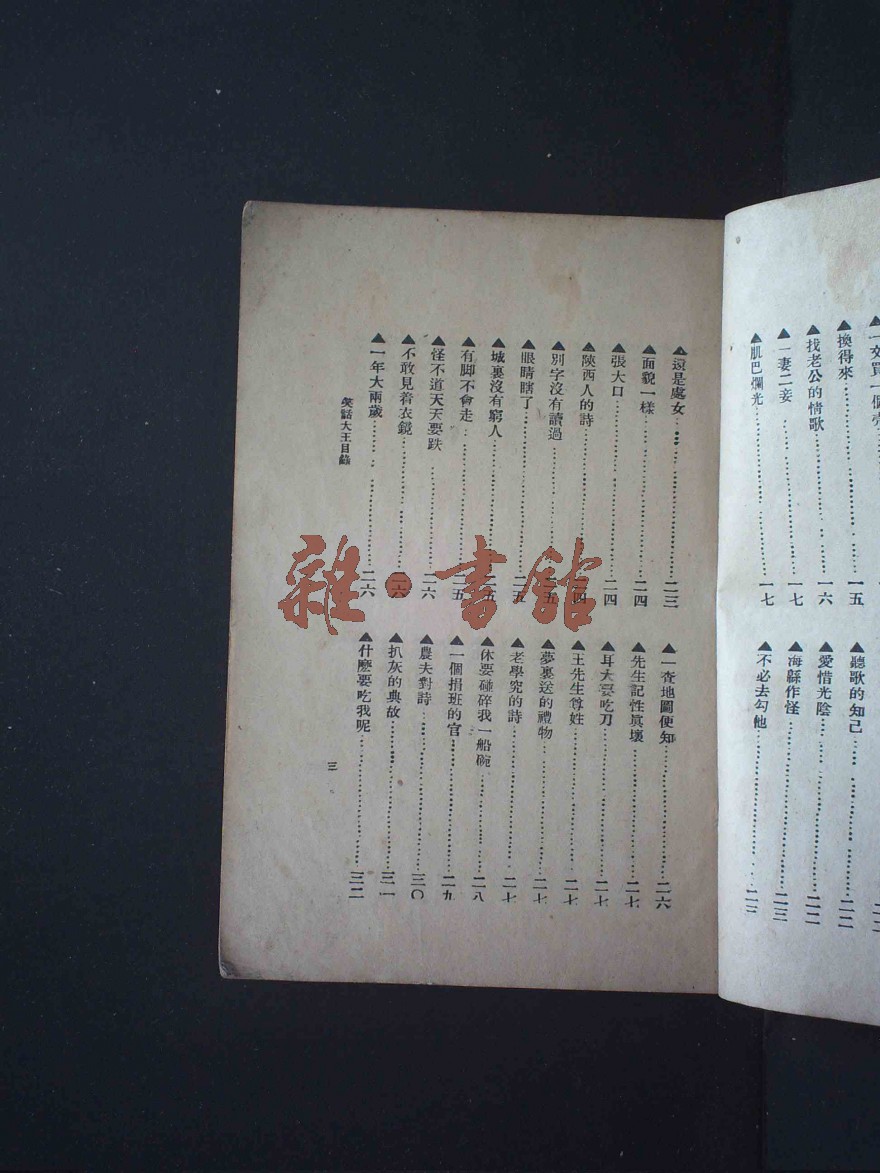 換得來……一五
▲找老公的情歌……一六
▲一妻二妾……一七
▲肌巴爛光……一七
▲聽歌的知己……二二
▲愛惜光陰……二二
▲海縣作怪……二三
▲不必去勾他……二三
▲還是處女……二三
▲面貌一樣……二四
▲張大口……二四
▲陝西人的詩……二四
▲別字沒有讀過……二五
▲眼睛瞎了……二五
▲城裏沒有窮人……二五
▲有脚不會走……二五
▲怪不道天天要跌……二六
▲不敢見着衣鏡……二六
▲一年大兩歲……二六
▲一查地圖便知……二六
▲先生記性眞壞……二七
▲耳大要吃刀……二七
▲王先生尊姓……二七
▲夢裏送的禮物……二七
▲老學究的詩……二七
▲休要碰碎我一船碗……二八
▲一個捐班的官……二九
▲農夫對詩……三〇
▲扒灰的典故……三一
▲什麽要吃我呢……三二
笑話大王目錄
三
雜·書館